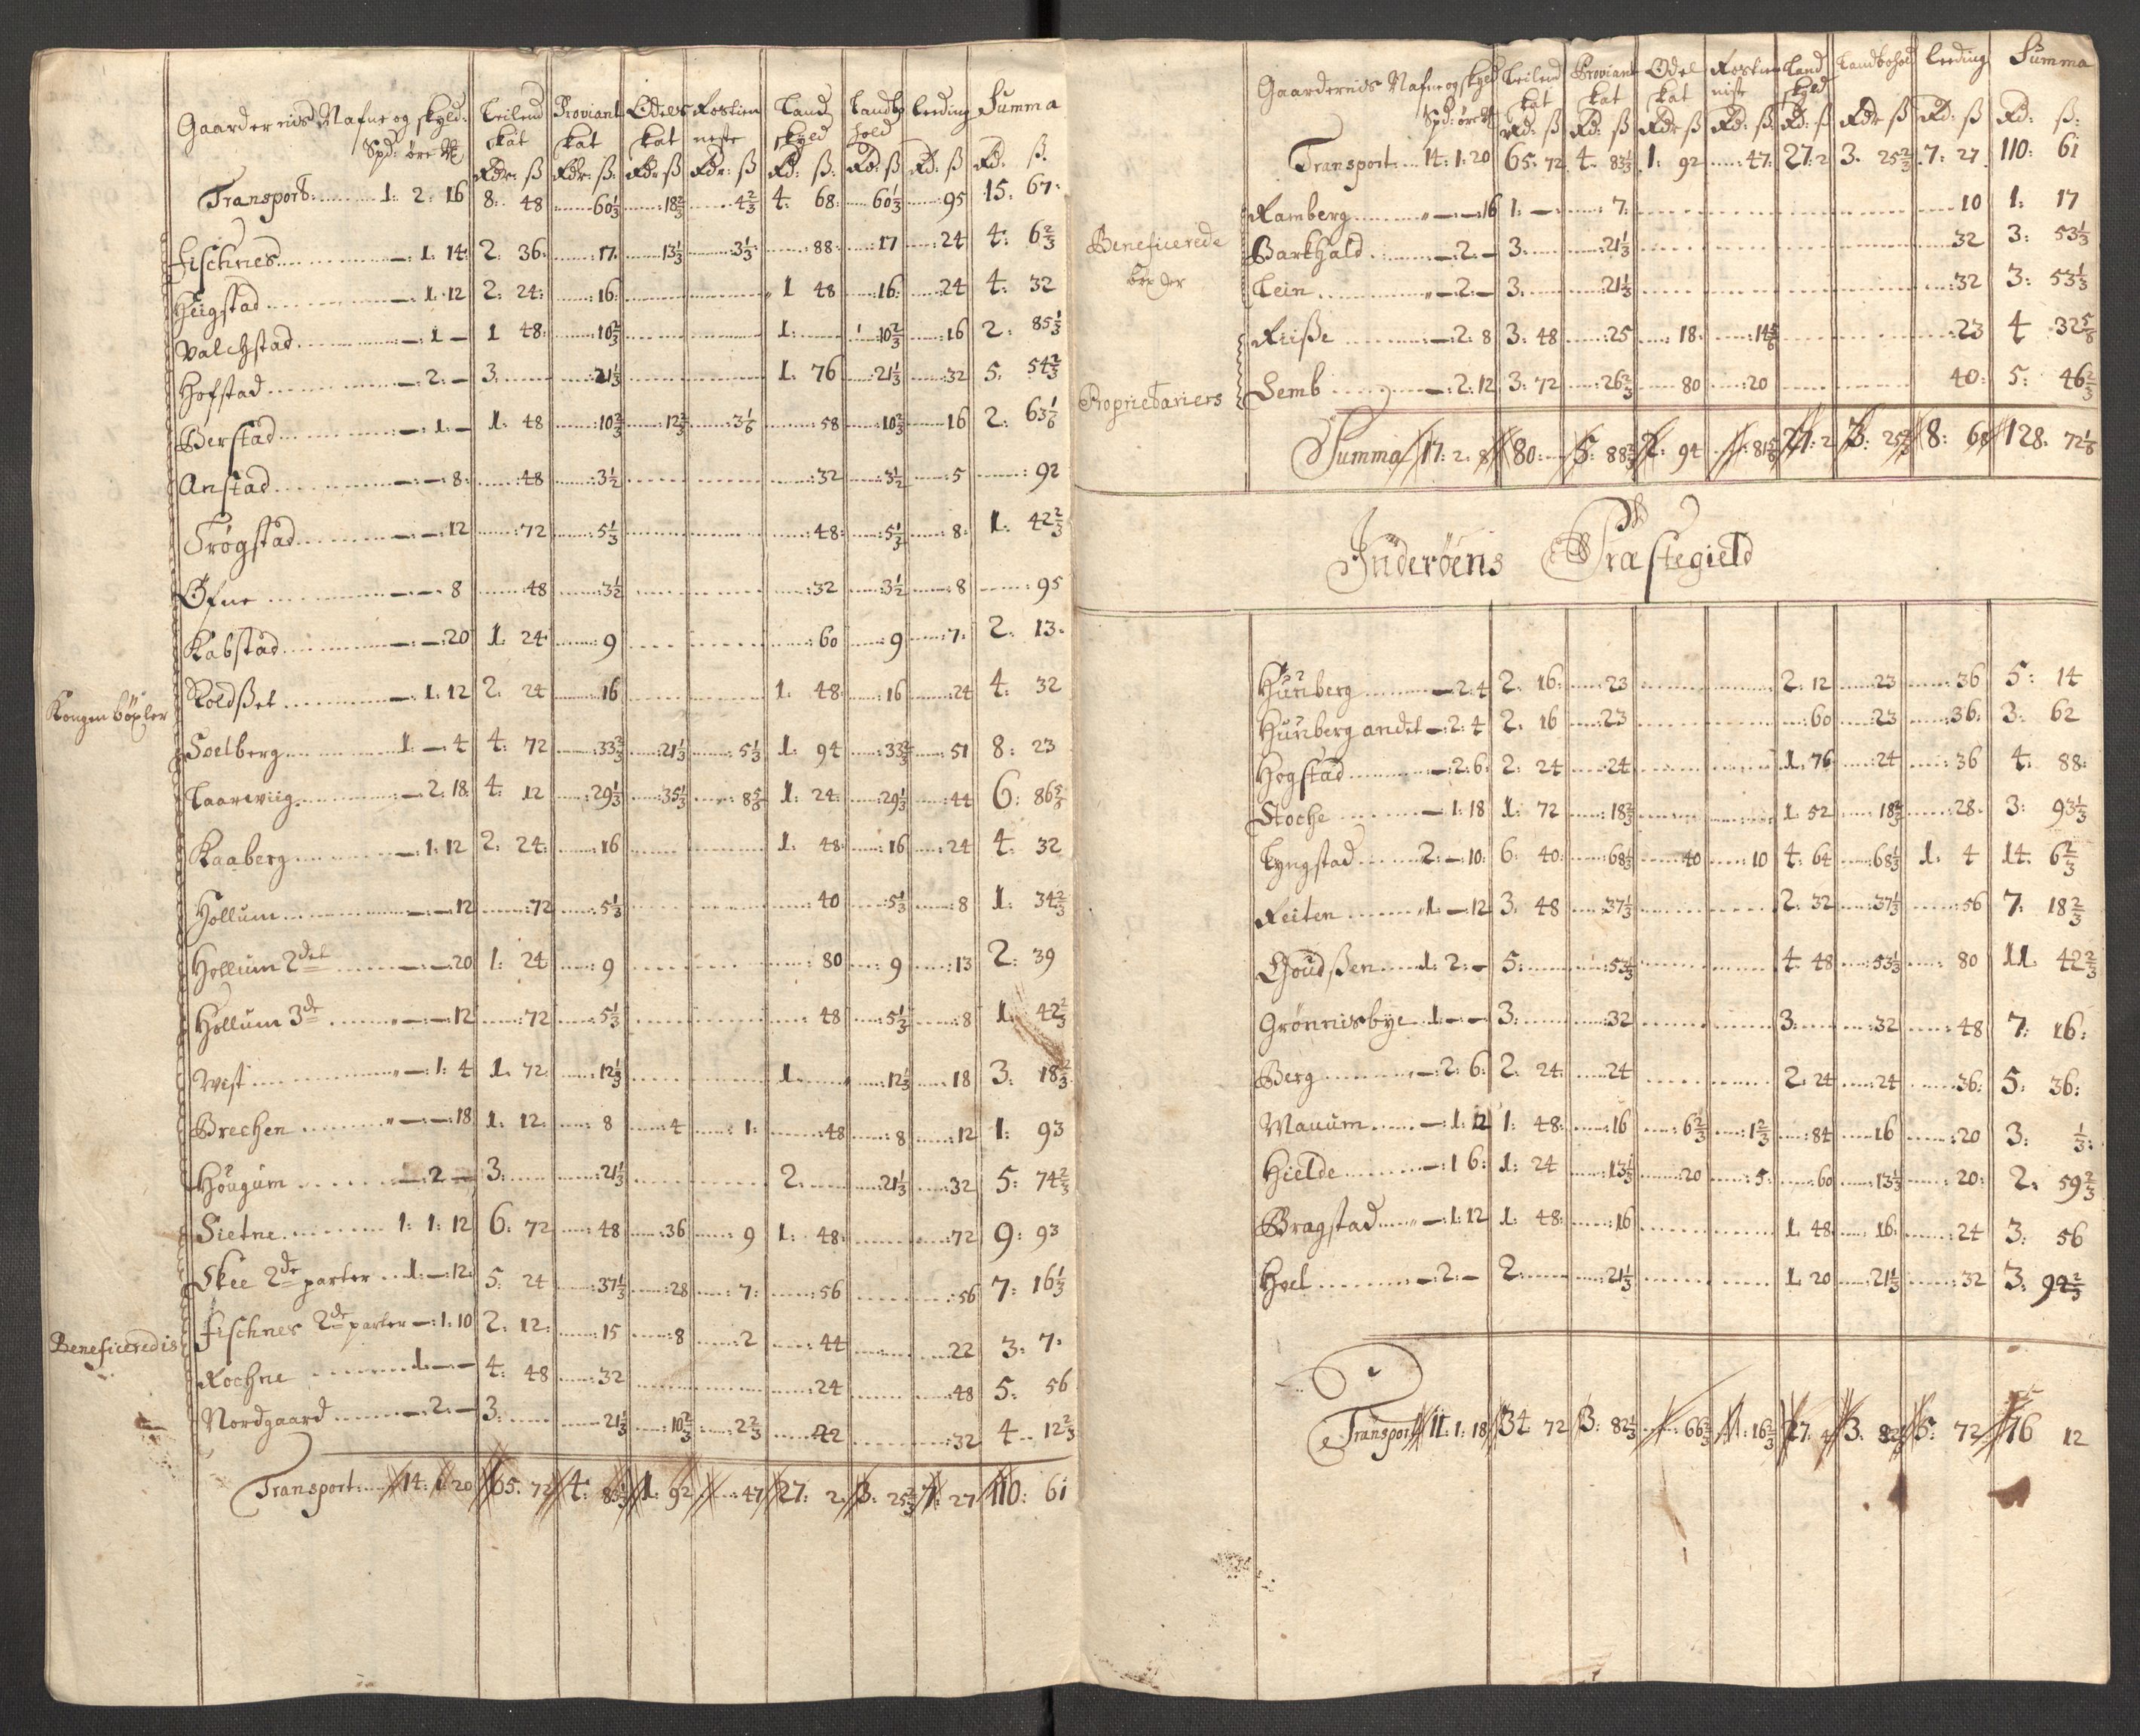 Gaardernis Nafne og skyld: Leilend skat Proviant skat Odels skat Rostieneste Land skyld Landbohold Leding Summa
Spd: øre Rdr: ß Rdr: ß Rdr: ß Rdr: ß Rd: ß Rd: ß Rd: ß Rd: ß
Transport: 1: 2: 16 8: 48 60 1/3 18 2/3 4 2/3 4: 68: 60 1/3 95 15: 67
Fischnes — 1: 14: 2: 36: 17: 13 1/3 3 1/3 88: 17 24 4: 6 2/3
Heigstad — 1: 12 2: 24: 16: 1 48 16: 24 4: 32
Valchstad — 1 — 1 48: 10 2/3 1: 10 2/3 16 2: 85 1/3
Hofstad — 2: — 3: 21 1/3 1: 76 21 1/3 32 5: 54 2/3
Berstad — 1: — 1: 48 10 2/3 12 2/3 3 1/6 58 10 2/3 16 2: 63 1/6
Anstad — — 8: 48 3 1/2 32 3 1/2 5 92
Trøgstad — — 12 72 5 1/3 48: 5 1/3 8: 1: 42 2/3
Øfne — — 8 48 3 1/2 32 3 1/2 8 95
Kabstad — — 20 1: 24 9 60 9 7: 2: 13
Kongen böxler
Roldßet — 1: 12 2: 24 16 1: 48: 16 24 4: 32
Soelberg 1: — 4 4: 72 33 2/3 21 1/3 5 1/3 1: 94 33 2/3 51 8: 23
Laarwiig — 2: 18: 4: 12 29 1/3 35 1/3 8 5/6 1: 24: 29 1/3 44 6: 86 5/6
Kaaberg — 1: 12 2: 24: 16 1: 48: 16 24 4: 32
Hollum — — 12 72 5 1/3 40 5 1/3 8 1: 34 2/3
Hollum 2det — — 20 1: 24 9 80 9 13 2: 39
Hollum 3de — — 12 72 5 1/3 48 5 1/3 8 1: 42 2/3
West — 1: 4 1: 72 12 1/3 1: 12 1/3 18 3: 18 2/3
Brechen — — 18 1: 12: 8 4 1: 48 8 12 1: 93
Hougum — 2 — 3: 21 1/3 2: 21 1/3 32 5: 74 2/3
Sietne 1: 1: 12 6: 72 48 36 9 1: 48: 72 9: 93
Skee 2de parter 1: — 12: 5: 24 37 1/3 28 7: 56 56 7: 16 1/3
Beneficeredis
Fischnes 2de parter — 1: 10 2: 12: 15 8 2 44 22 3: 7:
Rochne 1: — — 4: 48 32 24 48 5: 56
Nordgaard — 2: — 3: 21 1/3 10 2/3 2 2/3 42 32 4: 12 2/3
Transport: 14: 1: 20 65: 72 4: 83 1/3 1: 92 47 27: 2: 3: 25 2/3 7: 27 110: 61
Gaardernis Nafne og skyld Leilend skat Proviant skat Odel skat Rostieniste Land skyld Landbohold Leeding Summa
Spd: øre Rd: ß Rd: ß Rdr ß Rd: ß Rd: ß Rdr ß Rd: ß Rd: ß:
Transport 14: 1: 20 65: 72 4: 83 1/3 1: 92 47: 27: 2 3: 25 2/3 7: 27 110: 61
Ramberg — — 16 1: — 7: 10 1: 17
Beneficerede
Barkhald — 2: — 3: 21 1/3 32 3: 53 1/3
Lein — 2: — 3: 21 1/3 32 3: 53 1/3
Riiße — 2: 8 3: 48 25 18: 14 5/6 23 4 32 5/6
Proprietariers
Semb — 2: 12 3: 72 26 2/3 80 20 40: 5: 46 2/3
Summa 17: 2: 8 80: 5: 88 2/3 2: 94 81 5/6 27: 2 3: 25 2/3 8: 68 128: 72 1/6
Inderöens Præstegield
Hünberg — 2: 4 2: 16: 23 2: 12 23 36 5: 14
Hünberg andet — 2: 4 2: 16 23 60 23 36: 3: 62
Hogstad — 2: 6: 2: 24 24 1: 76 24 36 4: 88:
Stoche — 1: 18 1: 72 18 2/3 1: 52 18 2/3 28: 3: 93 1/3
Lyngstad 2: — 10: 6: 40: 68 1/3 40 10 4: 64 68 1/3 1: 4 14: 6 2/3
Reiten 1: — 12 3: 48 37 1/3 2: 32 37 1/3 56 7: 18 2/3
Goudßen 1: 2: — 5: 53 1/3 4: 48 53 1/3 80 11: 42 2/3
Grönnisbye 1: — — 3: 32 3: 32 48 7: 16:
Berg — 2: 6: 2: 24: 24 2: 24 24 36: 5: 36:
Wauum — 1: 12 1: 48: 16 6 2/3 1 2/3 84 16 20 3: 1/3:
Hielde — 1: 6: 1: 24 13 1/3 20 5: 60 13 1/3 20: 2: 59 2/3
Bragstad — 1: 12 1: 48: 16 1: 48 16: 24 3: 56
Hoel — 2: — 2: 21 1/3 1: 20 21 1/3 32 3: 94 2/3
Transport 11: 1: 18 34 72 3: 82 1/3 66 2/3 16 2/3 27: 4 3: 82 5: 72 76 12